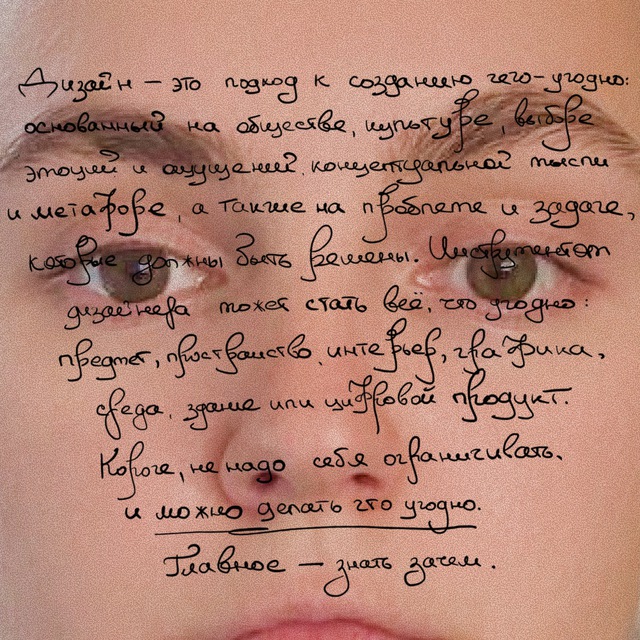 Дизайн — это подход к созданию чего-угодно:
основанный на обществе, культуре, выборе
эмоций и ощущений, концептуальной мысли
и метафоре, а также на проблеме и задаче,
которые должны быть решены. Инструментом
дизайнера может стать всё, что угодно:
предмет, пространство, интерьер, графика,
среда, здание или цифровой продукт.
Короче, не надо себя ограничивать.
и можно делать что угодно.
Главное — знать зачем.